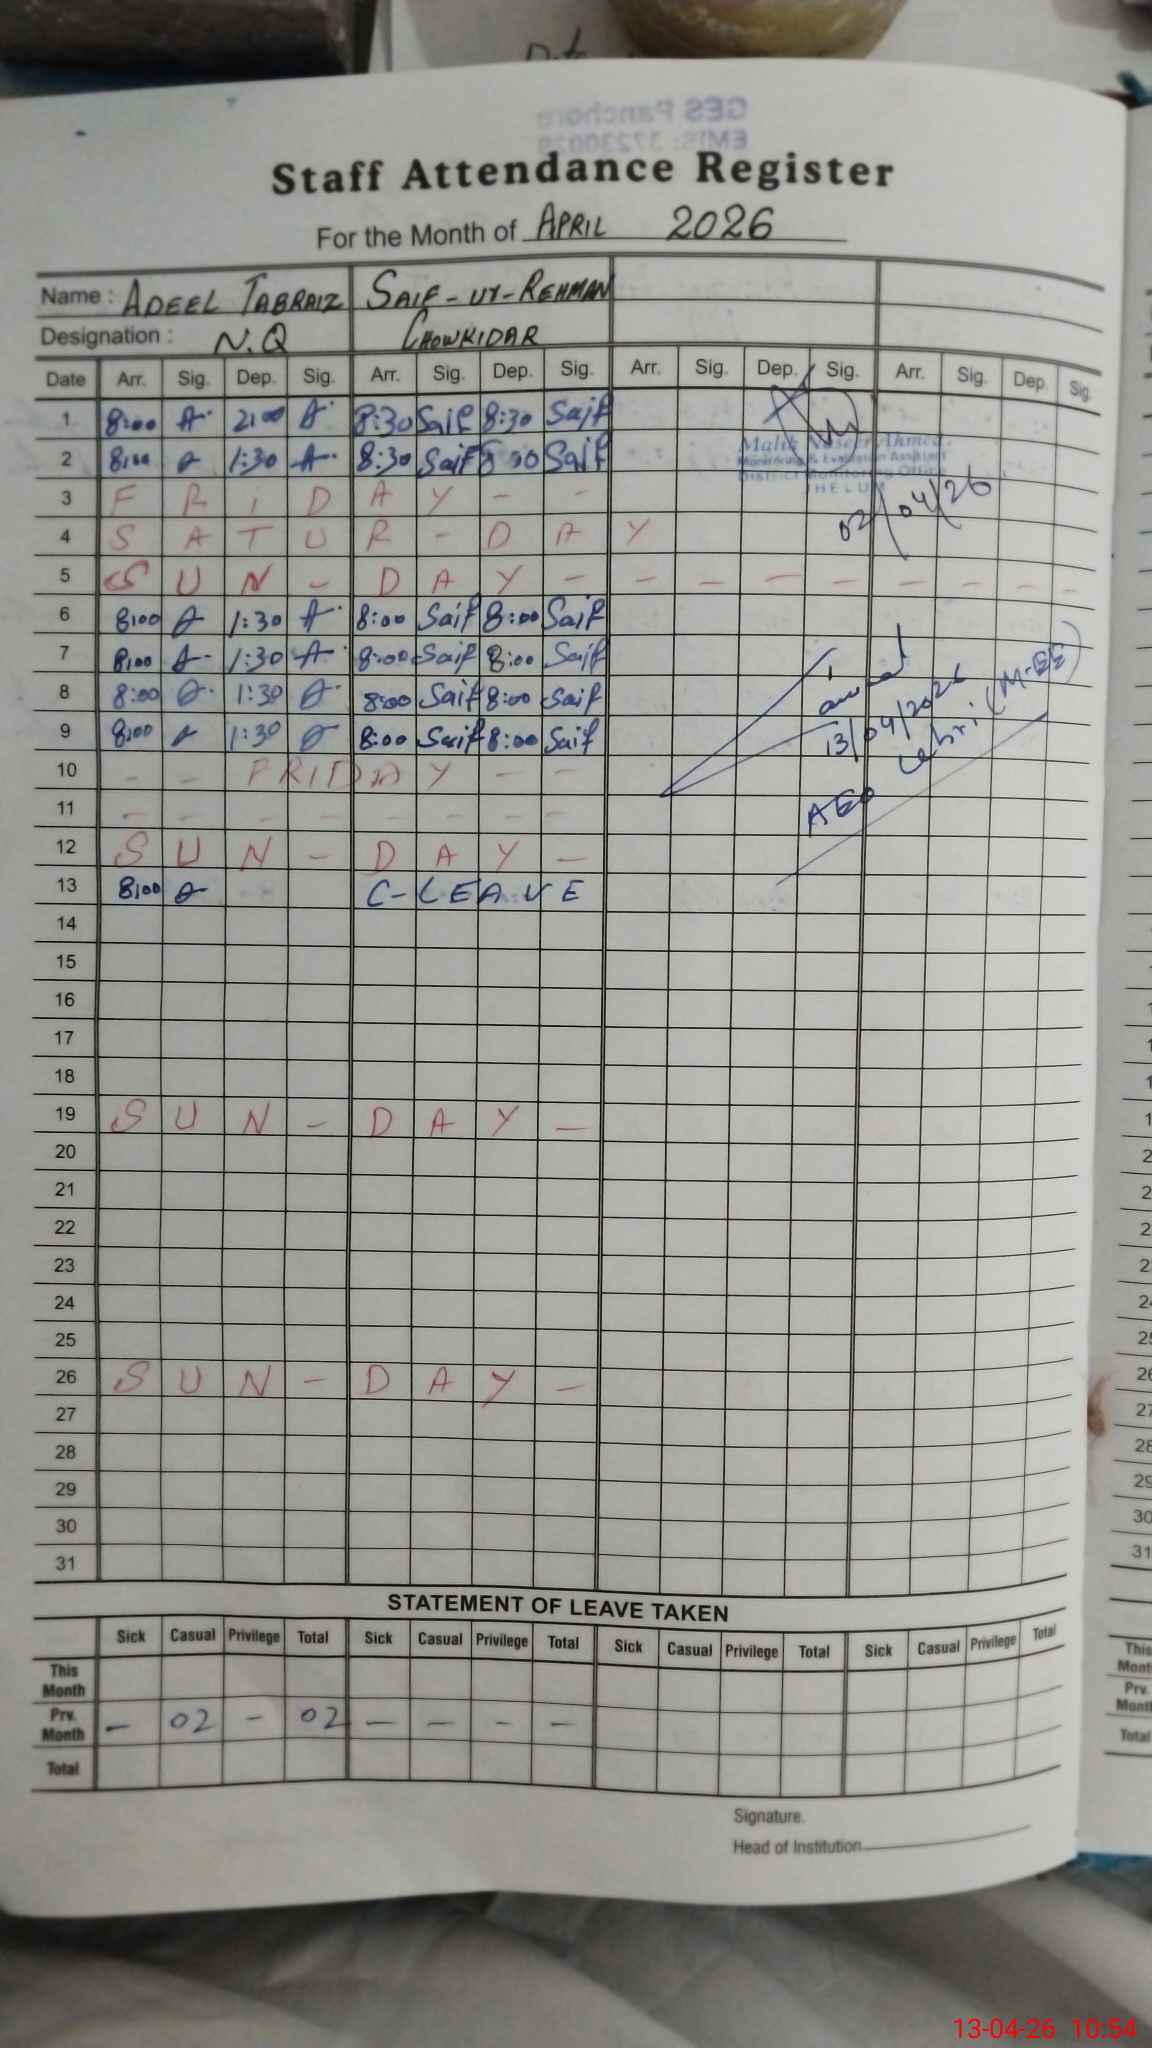 GES Panchore
EMIS: 37230029
Staff Attendance Register
For the Month of APRIL 2026
Name : ADEEL TABRAIZ SAIF-UR-REHMAN
Designation : N.Q CHOWKIDAR
Date Arr. Sig. Dep. Sig. Arr. Sig. Dep. Sig. Arr. Sig. Dep. Sig. Arr. Sig. Dep. Sig.
1 8:00 A 2:00 A 8:30 Saif 8:30 Saif
2 8:00 A 1:30 A 8:30 Saif 8:30 Saif
Malik Naseer Ahmed
Monitoring & Evaluation Assistant
District Monitoring Office
JHELUM
02/04/26
3 F R I D A Y - -
4 S A T U R - D A Y
5 S U N - D A Y - - - - - - - - -
6 8:00 A 1:30 A 8:00 Saif 8:00 Saif
7 8:00 A 1:30 A 8:00 Saif 8:00 Saif
8 8:00 A 1:30 A 8:00 Saif 8:00 Saif
9 8:00 A 1:30 A 8:00 Saif 8:00 Saif
13/04/2026
AEO Lehri (M-EE)
10 - - FRIDAY - -
11 - - - - - - - -
12 S U N - D A Y -
13 8:00 A C-LEAVE
14
15
16
17
18
19 S U N - D A Y -
20
21
22
23
24
25
26 S U N - D A Y -
27
28
29
30
31
STATEMENT OF LEAVE TAKEN
Sick Casual Privilege Total Sick Casual Privilege Total Sick Casual Privilege Total Sick Casual Privilege Total
This Month
Prv. Month - 02 - 02 - - - -
Total
Signature.
Head of Institution
13-04-26 10:54